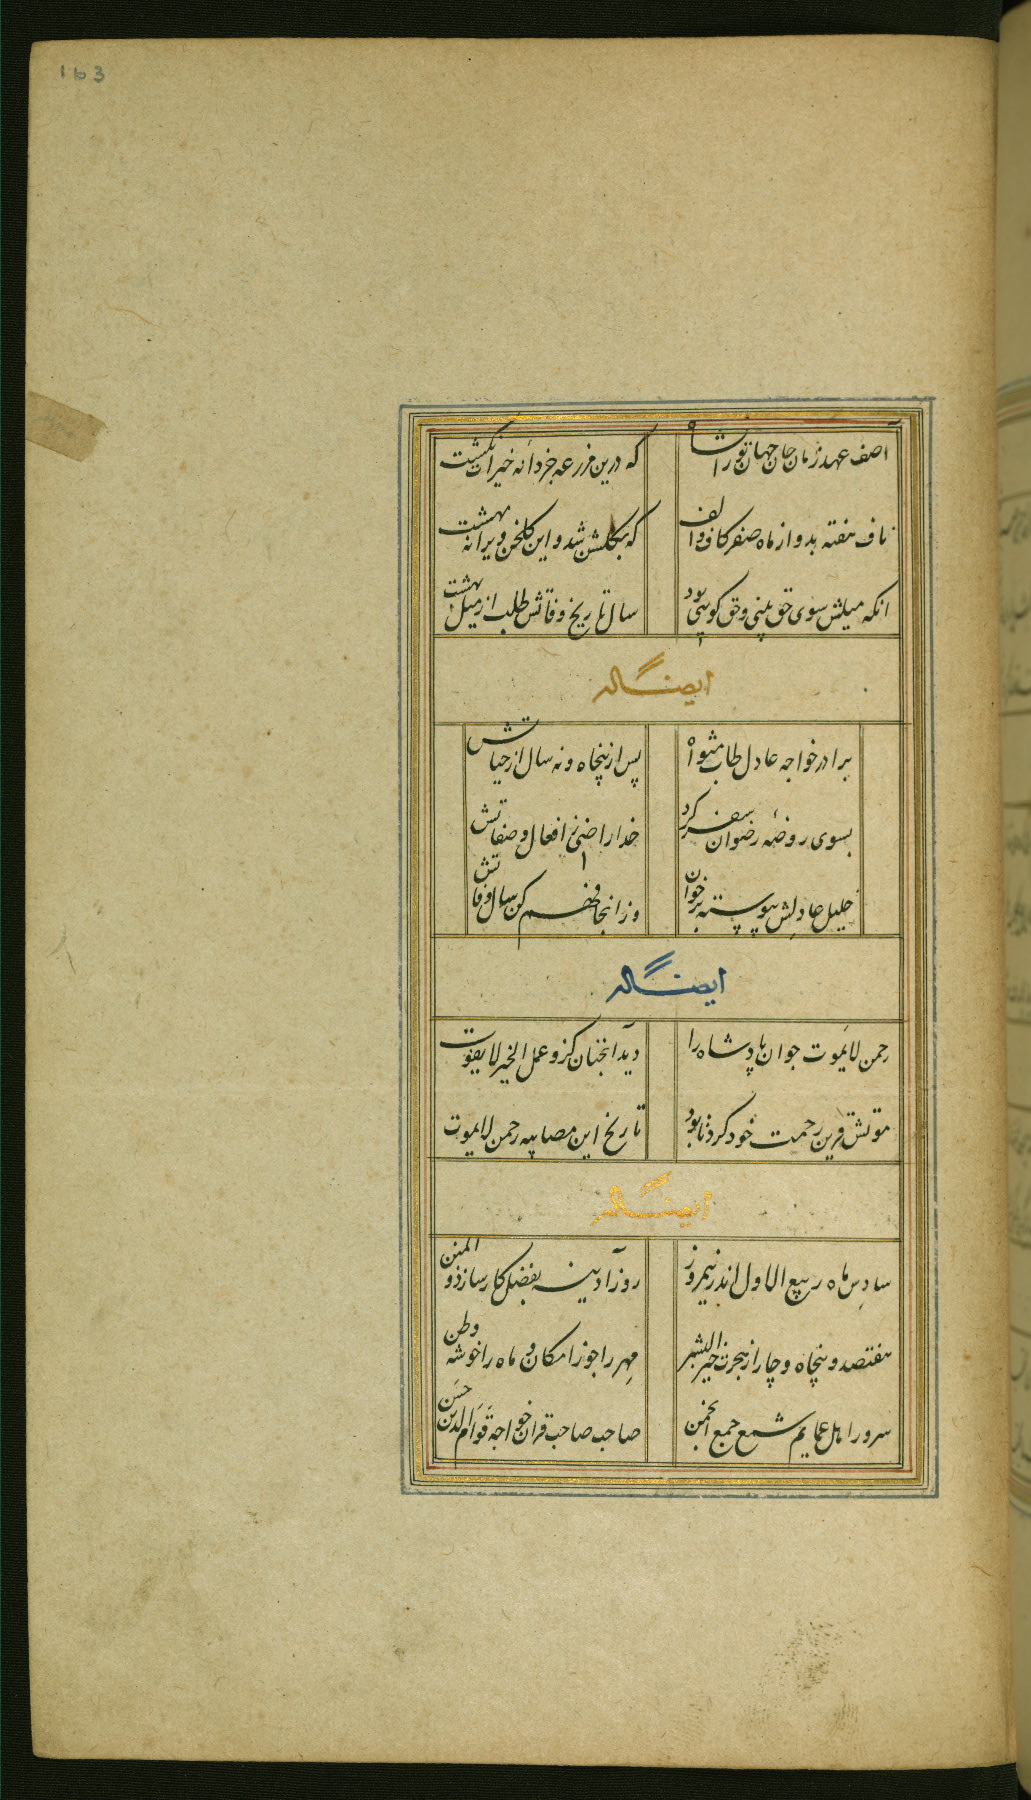 163
آصف عهد زمان جان جهان تورا شاه
که درین مزرعه جز دانه خیرات نکشت
ناف هفته بد و از ماه صفر کاف و الف
که بگلشن شد و این گلخن ویرانه بهشت
انکه میلش سوی حق بینی و حق کویی بود
سال تاریخ وفاتش طلب از میل بهشت
ایضاً له
برادر خواجه عادل طاب مثواه
پس از پنجاه و نه سال از حیاتش
بسوی روضه رضوان سفر کرد
خدا راضی ز افعال و صفاتش
خلیل عادلش پیوسته برخوان
وز انجا فهم کن سال وفاتش
ایضاً له
رحمن لایموت جوان پادشاه را
دید آنچنان کزو عمل الخیر لایفوت
موتش قرین رحمت خود کرد تا بود
تاریخ این مصابیه رحمن لایموت
ایضاً له
سادس ماه ربیع الاول اندر نیمروز
روز آدینه بفضل کارساز ذو المنن
هفتصد و پنجاه و چار از هجرت خیر البشر
مهر را جوزا مکان و ماه را خوشه وطن
سرور اهل عمایم شمع جمع انجمن
صاحب صاحب قران خواجه قوام الدین حسن